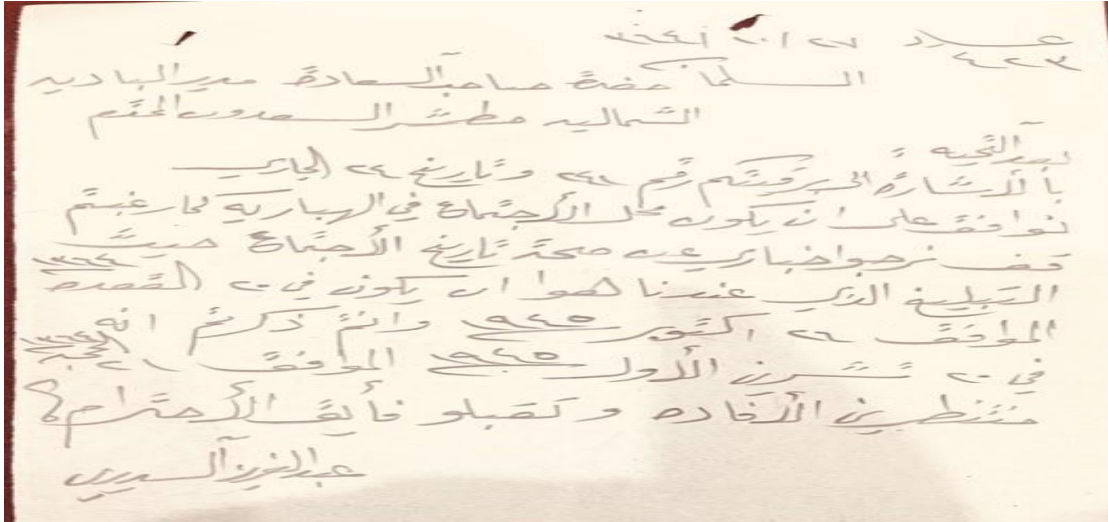 عدد ٢٧ /١٠/ ١٣٦٤
٤٢٣
السلمان حضرة صاحب السعادة مدير الباديه
الشماليه مطشر السعدون المحترم
بعد التحيه
بالأشارة الى برقيتكم رقم ٢٤١ وتاريخ ٢٤ الجاري
نوافق على ان يكون محل الأجتماع في الهباريه كما رغبتم
قف نرجوا اخباري عن صحة تاريخ الأجتماع حيث
التبليغ الذي عندنا هوا ان يكون في ٢٠ القعده ١٣٦٤
الموافق ٢٦ اكتوبر ١٩٤٥ وانتم ذكرتم انه
في ٢٠ تشرين الأول ١٩٤٥ الموافق ٢١ الحجه ١٣٦٤
منتظرين الأفاده وتقبلو فأيق الأحترام
عبدالعزيز السديري